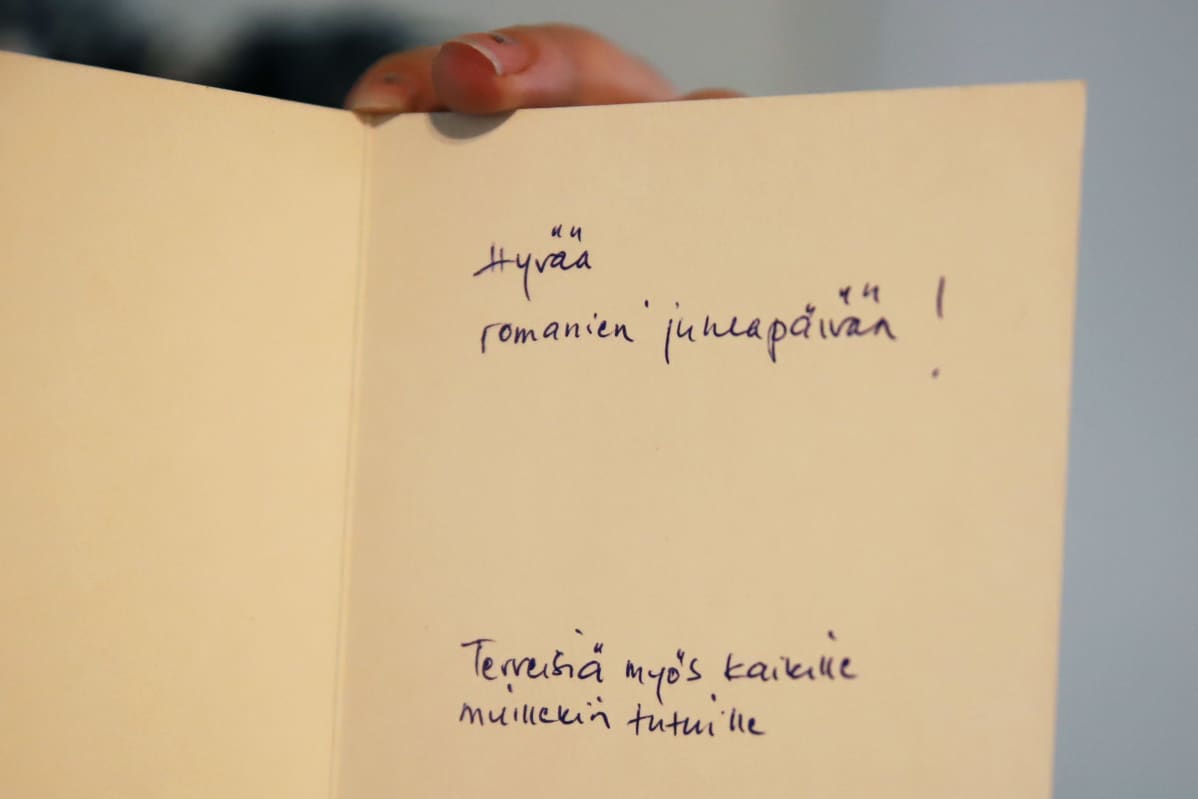 Hyvää
romanien juhlapäivän !
Terveisiä myös kaikille
muillekin tutuille